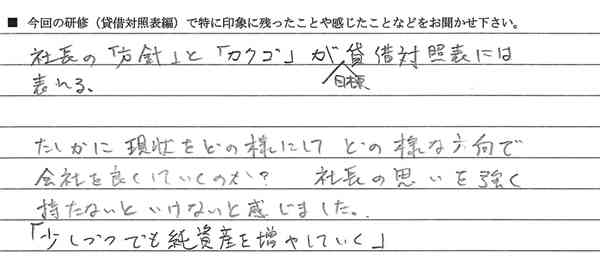 ■ 今回の研修（貸借対照表編）で特に印象に残ったことや感じたことなどをお聞かせ下さい。
社長の「方針」と「カクゴ」が貸借対照表には
目標
表れる、
たしかに現状をどの様にして どの様な方向で
会社を良くしていくのか？ 社長の思いを強く
持たないといけないと感じました。
「少しづつでも純資産を増やしていく」